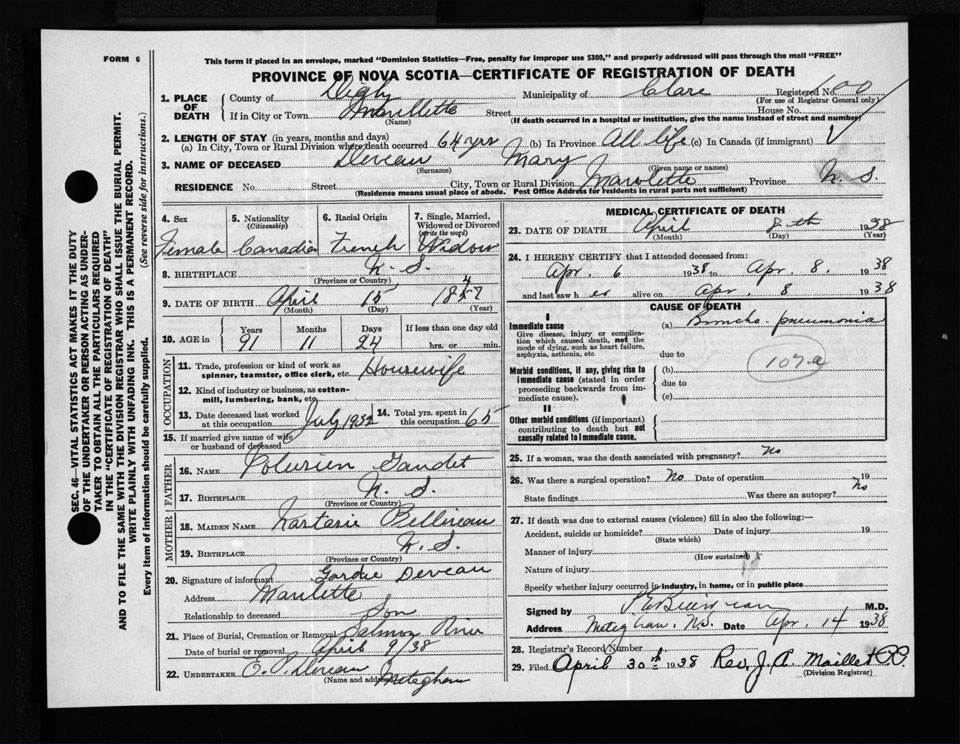 FORM 6
This form if placed in an envelope, marked "Dominion Statistics—Free, penalty for improper use $300," and properly addressed will pass through the mail "FREE"
PROVINCE OF NOVA SCOTIA—CERTIFICATE OF REGISTRATION OF DEATH
SEC. 46—VITAL STATISTICS ACT MAKES IT THE DUTY
OF THE UNDERTAKER OR PERSON ACTING AS UNDER-
TAKER TO OBTAIN ALL THE PARTICULARS REQUIRED
IN THE "CERTIFICATE OF REGISTRATION OF DEATH"
AND TO FILE THE SAME WITH THE DIVISION REGISTRAR WHO SHALL ISSUE THE BURIAL PERMIT.
WRITE PLAINLY WITH UNFADING INK. THIS IS A PERMANENT RECORD.
Every item of information should be carefully supplied. (See reverse side for instructions.)
1. PLACE OF DEATH County of Digby Municipality of Clare Registered No.
(For use of Registrar General only)
If in City or Town Street House No.
(Name) (If death occurred in a hospital or institution, give the name instead of street and number)
2. LENGTH OF STAY (in years, months and days)
(a) In City, Town or Rural Division where death occurred 64 yrs (b) In Province All life (c) In Canada (if immigrant)
3. NAME OF DECEASED Deveau Mary
(Surname) (Given name or names)
RESIDENCE No. Street City, Town or Rural Division Province N. S.
(Residence means usual place of abode. Post Office Address for residents in rural parts not sufficient)
4. Sex Female
5. Nationality (Citizenship) Canadian
6. Racial Origin French
7. Single, Married, Widowed or Divorced (write the word) Widow
8. BIRTHPLACE N. S.
(Province or Country)
9. DATE OF BIRTH April 15
(Month) (Day) (Year)
10. AGE in Years Months Days If less than one day old
91 11 24 hrs. or min.
OCCUPATION
11. Trade, profession or kind of work as spinner, teamster, office clerk, etc. Housewife
12. Kind of industry or business, as cotton-mill, lumbering, bank, etc.
13. Date deceased last worked at this occupation July 1932
14. Total yrs. spent in this occupation 65
15. If married give name of wife or husband of deceased
FATHER
16. NAME Gaudet
17. BIRTHPLACE N. S.
(Province or Country)
MOTHER
18. MAIDEN NAME Belliveau
19. BIRTHPLACE N. S.
(Province or Country)
20. Signature of informant Deveau
Address
Relationship to deceased Son
21. Place of Burial, Cremation or Removal Salmon River
Date of burial or removal April 9/38
22. UNDERTAKER Meteghan
(Name and address)
MEDICAL CERTIFICATE OF DEATH
23. DATE OF DEATH April 8th 1938
(Month) (Day) (Year)
24. I HEREBY CERTIFY that I attended deceased from:
Apr. 6 1938 to Apr. 8, 1938
and last saw her alive on Apr. 8 1938
CAUSE OF DEATH
I
Immediate cause (a) Broncho-pneumonia
Give disease, injury or complica-
tion which caused death, not the
mode of dying, such as heart failure,
asphyxia, asthenia, etc
due to
107a
Morbid conditions, if any, giving rise to (b)
immediate cause (stated in order due to
proceeding backwards from im- (c)
mediate cause).
II
Other morbid conditions (if important)
contributing to death but not
causally related to immediate cause.
25. If a woman, was the death associated with pregnancy? No
26. Was there a surgical operation? No Date of operation 19
State findings Was there an autopsy? No
27. If death was due to external causes (violence) fill in also the following:—
Accident, suicide or homicide? Date of injury 19
(State which)
Manner of injury
(How sustained)
Nature of injury
Specify whether injury occurred in industry, in home, or in public place
Signed by M.D.
Address Meteghan, N.S. Date Apr. 14 1938
28. Registrar's Record Number
29. Filed April 30th 1938 Rev. J. A. Maillet P.P.
(Division Registrar)